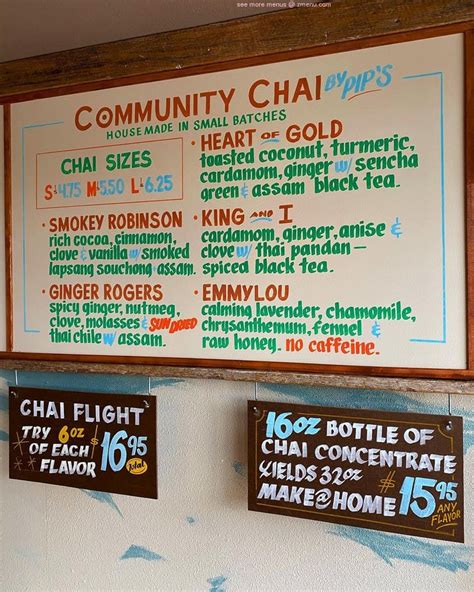 see more menus @ zmenu.com
COMMUNITY CHAI BY PIP'S
HOUSE MADE IN SMALL BATCHES
CHAI SIZES
S-4.75 M-5.50 L-6.25
• HEART OF GOLD
toasted coconut, turmeric,
cardamom, ginger w/ sencha
green & assam black tea.
• SMOKEY ROBINSON
rich cocoa, cinnamon,
clove & vanilla w/ smoked
lapsang souchong & assam.
• KING AND I
cardamom, ginger, anise &
clove w/ thai pandan-
spiced black tea.
• GINGER ROGERS
spicy ginger, nutmeg,
clove, molasses & SUN DRIED
thai chile w/ assam.
• EMMYLOU
calming lavender, chamomile,
chrysanthemum, fennel &
raw honey. no caffeine.
CHAI FLIGHT
TRY 6oz
OF EACH
FLAVOR
$16.95
total
16oz BOTTLE OF
CHAI CONCENTRATE
YIELDS 32oz
MAKE@HOME $15.95
ANY FLAVOR